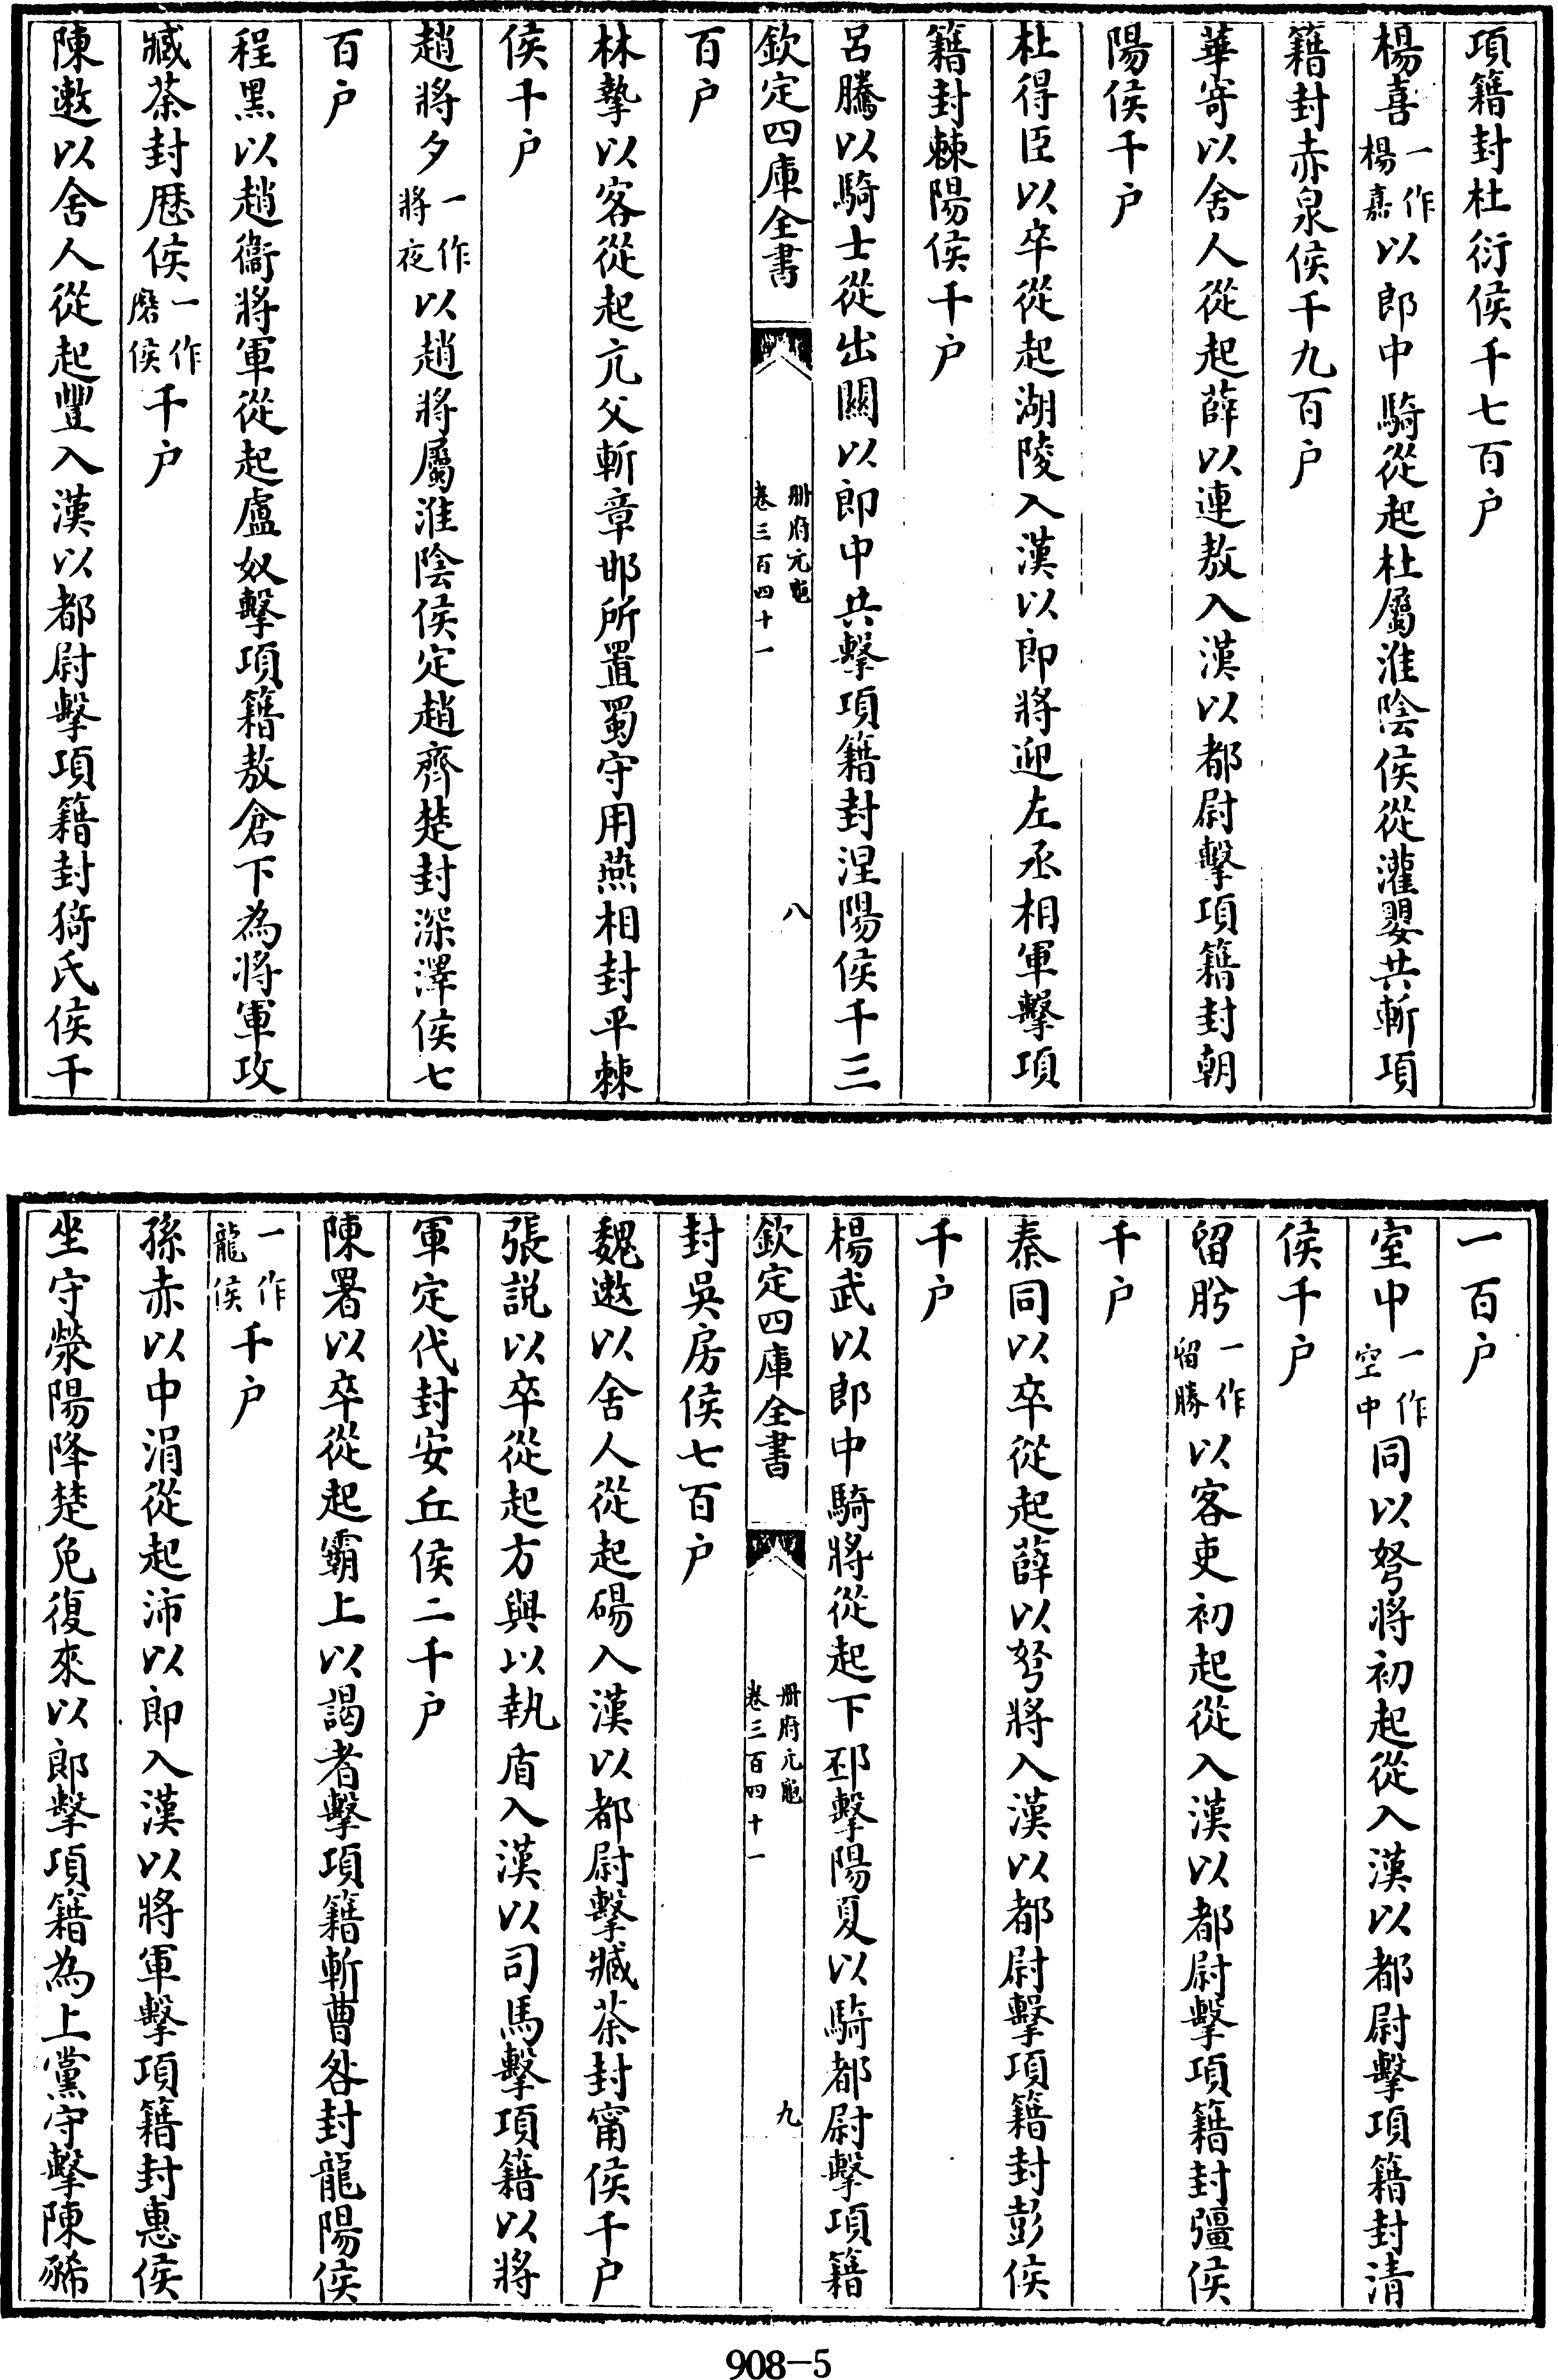 項籍封杜衍侯千七百户
楊喜一作楊嘉以郎中騎從起杜屬淮陰侯從灌嬰共斬項
籍封赤泉侯千九百户
華寄以舍人從起薛以連敖入漢以都尉擊項籍封朝
陽侯千户
杜得臣以卒從起湖陵入漢以郎將迎左丞相軍擊項
籍封棘陽侯千户
吕騰以騎士從出關以郎中共擊項籍封涅陽侯千三
欽定四庫全書 冊府元龜卷三百四十一 八
百户
林摯以客從起亢父斬章邯所置蜀守用燕相封平棘
侯千户
趙將夕一作將夜以趙將屬淮陰侯定趙齊楚封深澤侯七
百户
程黑以趙衞將軍從起盧奴擊項籍敖倉下為將軍攻
臧荼封厯侯一作磨侯千户
陳遬以舍人從起豐入漢以都尉擊項籍封猗氏侯千
一百户
室中一作空中同以弩將初起從入漢以都尉擊項籍封清
侯千户
留肹一作留勝以客吏初起從入漢以都尉擊項籍封彊侯
千户
秦同以卒從起薛以弩將入漢以都尉擊項籍封彭侯
千户
楊武以郎中騎將從起下邳擊陽夏以騎都尉擊項籍
欽定四庫全書 冊府元龜卷三百四十一 九
封吳房侯七百户
魏遬以舍人從起碭入漢以都尉擊臧荼封甯侯千户
張説以卒從起方與以執盾入漢以司馬擊項籍以將
軍定代封安丘侯二千户
陳署以卒從起霸上以謁者擊項籍斬曹咎封龍陽侯
一作龍侯千户
孫赤以中涓從起沛以郎入漢以將軍擊項籍封惠侯
坐守滎陽降楚免復來以郎擊項籍為上黨守擊陳豨
908-5